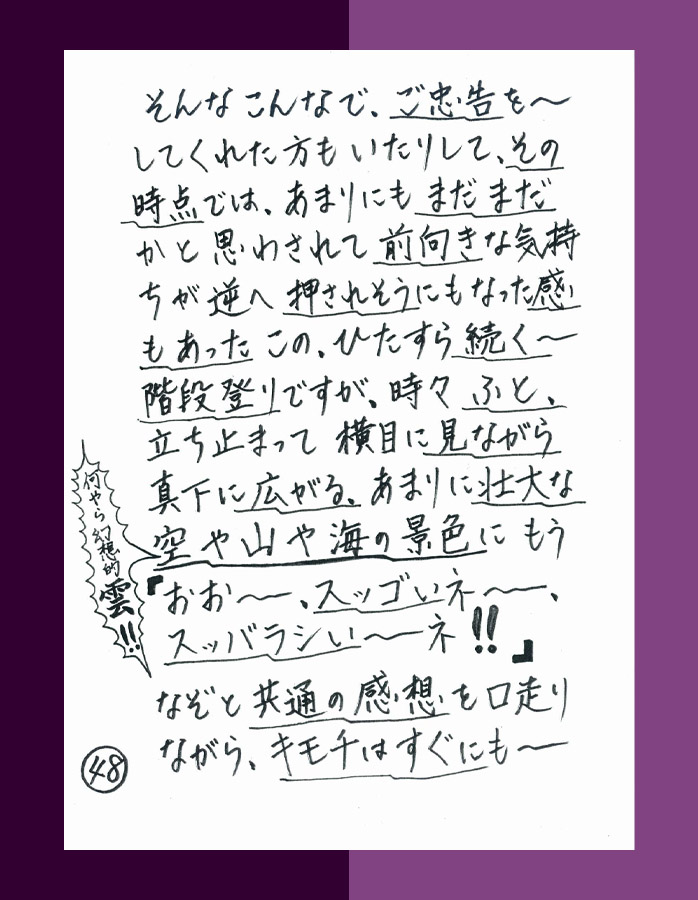 そんなこんなで、ご忠告を〜
してくれた方もいたりして、その
時点では、あまりにもまだまだ
かと思わされて前向きな気持
ちが逆へ押されそうにもなった感
もあったこの、ひたすら続く〜
階段登りですが、時々ふと、
立ち止まって横目に見ながら
真下に広がる、あまりに壮大な
空や山や海の景色にもう
『おお〜〜、スッゴいネ〜〜、
スッバラシい〜〜ネ!!』
なぞと共通の感想を口走り
ながら、キモチはすぐにも〜
何やら幻想的雲!!
48